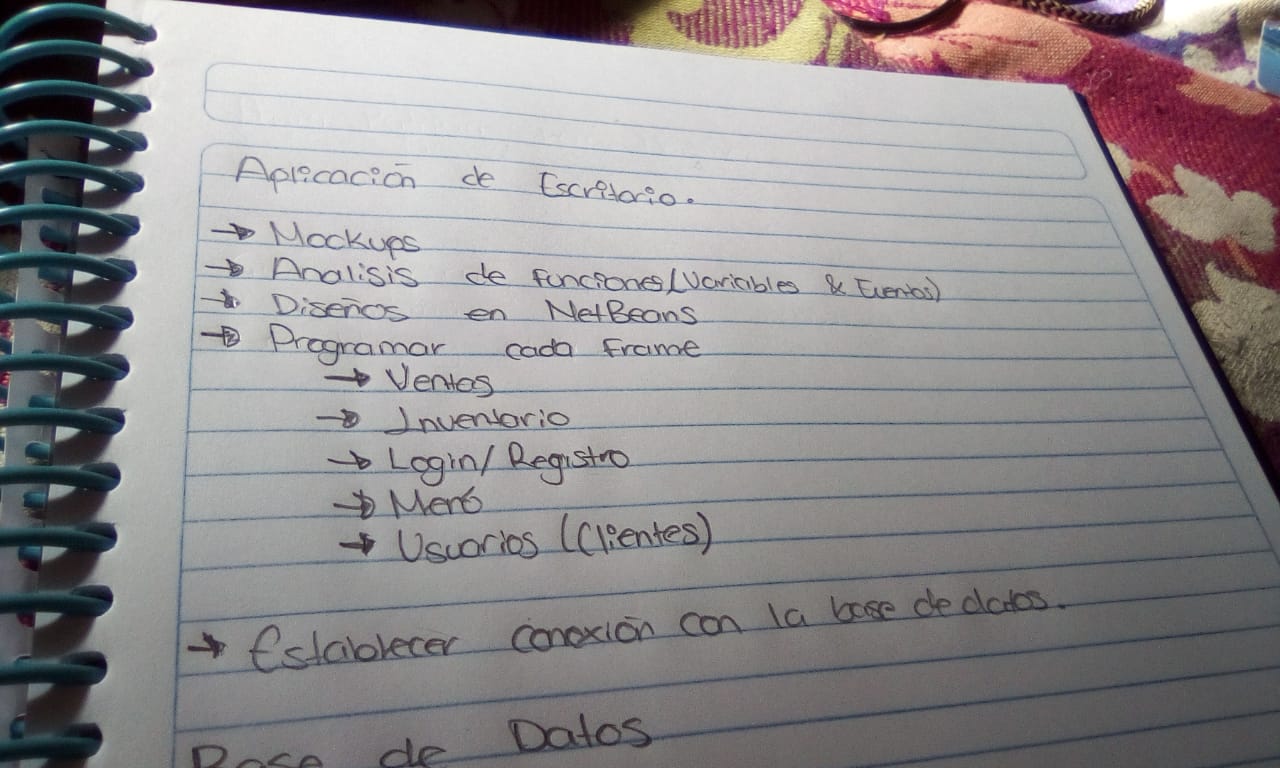 Aplicación de Escritorio.
→ Mockups
→ Analisis de funciones (Variables & Eventos)
→ Diseños en NetBeans
→ Programar cada Frame
→ Ventas
→ Inventario
→ Login/ Registro
→ Menú
→ Usuarios (Clientes)
→ Establecer conexión con la base de datos.
Base de Datos